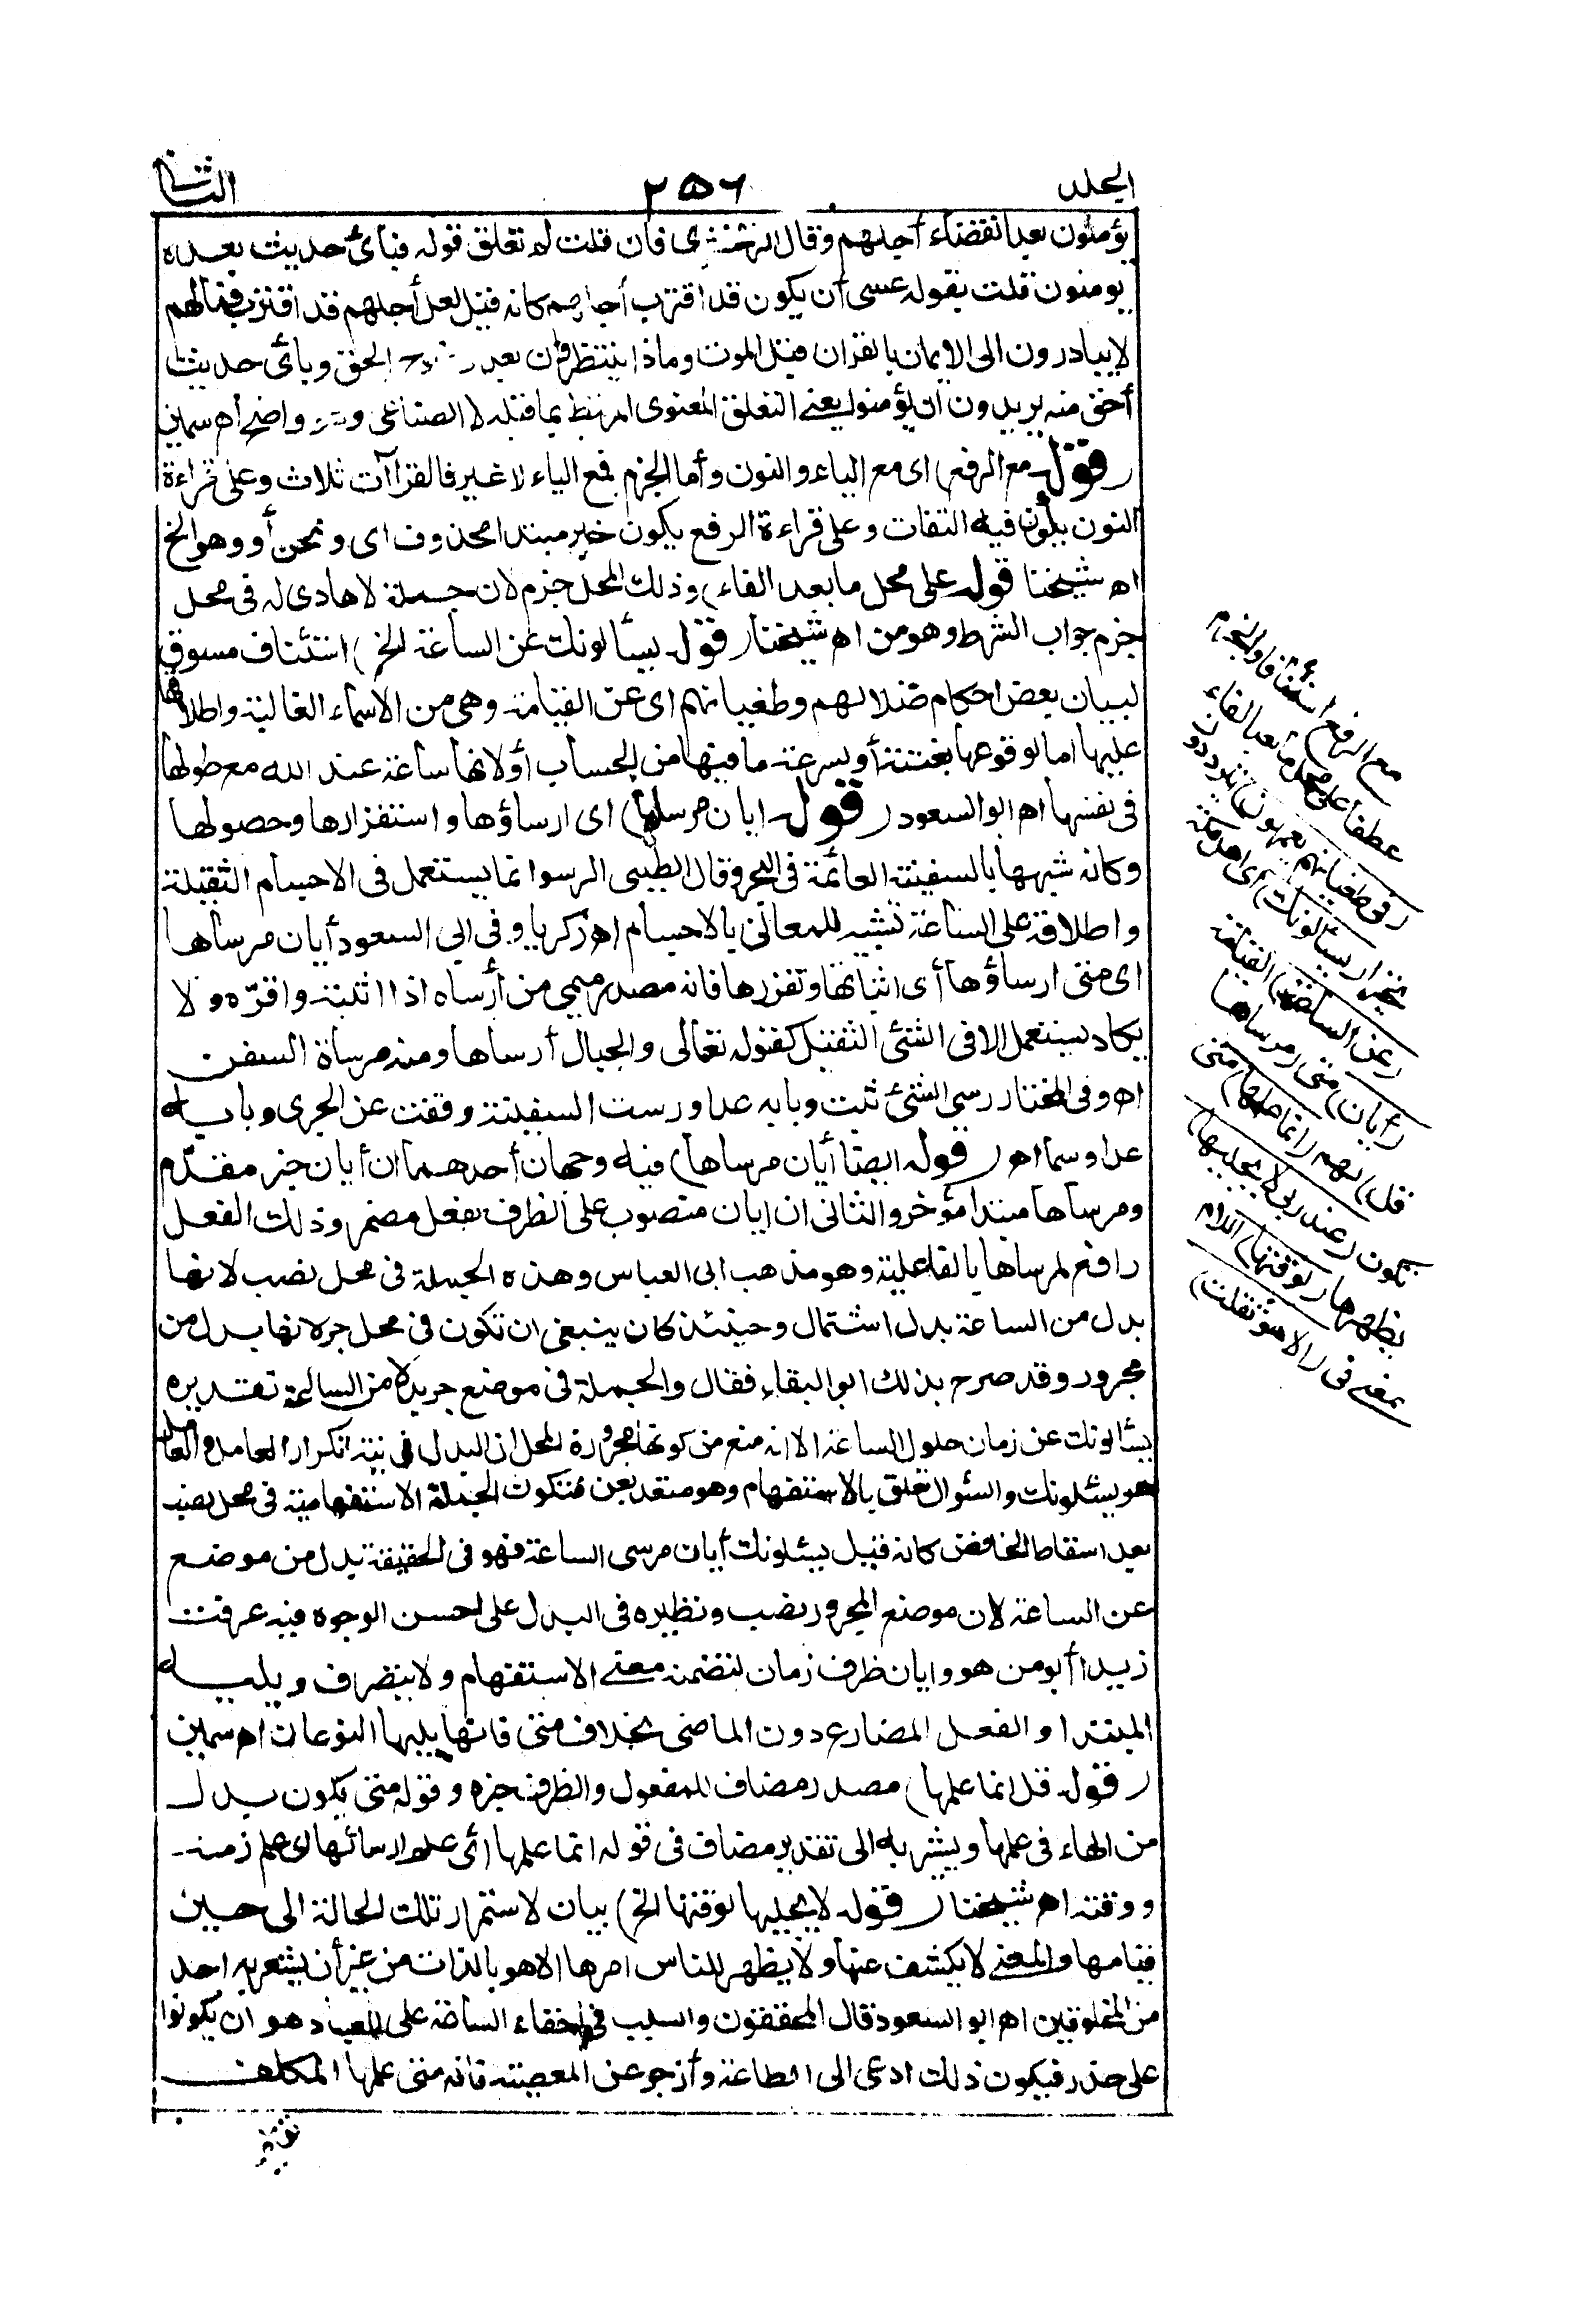 الجلد ٢٥٦ الثانى
يؤمنون بعد انقضاء أجلهم وقال الزمخشرى فان قلت لم تعلق قوله فبأى حديث بعده
يومنون قلت بقوله عسى أن يكون قد اقترب أجلهم كانه قيل لعل أجلهم قد اقترب فمالهم
لا يبادرون الى الايمان بالقران قبل الموت وماذا ينتظرون بعد وضوح الحق وبأى حديث
أحق منه يريدون ان يؤمنوا يعنى التعلق المعنوى المرتبط بما قبله لا الصناعى وهو واضح أه سمين
(قوله مع الرفع) اى مع الياء والنون وأما الجزم فمع الياء لا غير فالقراآت ثلاث وعلى قراءة
النون يكون فيه التفات وعلى قراءة الرفع يكون خبر مبتدا محذوف اى ونحن أو وهو الخ
اه شيخنا قوله على محل ما بعد الفاء) وذلك المحل جزم لان جملة لا هادى له فى محل
جزم جواب الشرط وهو من اه شيخنا (قوله يسألونك عن الساعة الخ) استئناف مسوق
لبيان بعض احكام ضلالهم وطغيانهم اى عن القيامة وهى من الاسماء الغالبة واطلاقها
عليها اما لوقوعها بغتة أو بسرعة ما فيها من الحساب أو لانها ساعة عند الله مع طولها
فى نفسها اه ابو السعود (قوله ايان مرساها) اى ارساؤها واستقرارها وحصولها
وكانه شبهها بالسفينة العائمة فى البحر وقال الطيبى الرسو انما يستعمل فى الاجسام الثقيلة
واطلاقه على الساعة تشبيه للمعانى بالاجسام اه زكريا وفى ابى السعود أيان مرساها
اى متى ارساؤها أى اثباتها وتقررها فانه مصدر ميمى من أرساه اذا اثبته واقرّه ولا
يكاد يستعمل الا فى الشئ الثقيل كقوله تعالى والجبال أرساها ومنه مرساة السفن
اه وفى المختار رسى الشئ ثبت وبابه عدا ورست السفينة وقفت عن الجرى وبابه
عدا وسما اه (قوله ايضا أيان مرساها) فيه وجهان أحدهما ان أيان خبر مقدّم
ومرساها مبتدا مؤخر والثانى ان ايان منصوب على الظرف بفعل مضمر وذلك الفعل
رافع لمرساها بالفاعلية وهو مذهب ابى العباس وهذه الجملة فى محل نصب لانها
بدل من الساعة بدل اشتمال وحينئذ كان ينبغى ان تكون فى محل جر لانها بدل من
مجرور وقد صرح بذلك ابو البقاء فقال والجملة فى موضع جر بدلا من الساعة تقديره
يسألونك عن زمان حلول الساعة الا انه منع من كونها مجرورة المحل ان البدل فى نية تكرار العامل والعامل
هو يسئلونك والسئوال تعلق بالاستفهام وهو متعد بعن فتكون الجملة الاستفهامية فى محل نصب
بعد اسقاط الخافض كانه قيل يسئلونك أيان مرسى الساعة فهو فى الحقيقة بدل من موضع
عن الساعة لان موضع المجرور نصب ونظيره فى البدل على احسن الوجوه فيه عرفت
زيدا أبو من هو وايان ظرف زمان لتضمنه معنى الاستفهام ولا يتصرف ويليه
المبتدا والفعل المضارع دون الماضى بخلاف متى فانها يليها النوعان اه سمين
(قوله قل انما علمها) مصدر مضاف للمفعول والظرف خبره وقوله متى يكون بدل
من الهاء فى علمها ويشير به الى تقدير مضاف فى قوله انما علمها أى علم ارسائها اى علم زمنه
ووقته اه شيخنا (قوله لا يجليها لوقتها الخ) بيان لاستمرار تلك الحالة الى حين
قيامها والمعنى لا يكشف عنها ولا يظهر للناس امرها الا هو بالذات من غير أن يشعر به احد
من المخلوقين اه ابو السعود قال المحققون والسبب فى اخفاء الساعة على العباد هو ان يكونوا
على حذر فيكون ذلك ادعى الى الطاعة وأزجر عن المعصية فانه متى علمها المكلف
مع الرفع استئنافا والجزم
عطفا على محل ما بعد الفاء
(فى طغيانهم يعمهون) يترددون
تحيرا (يسألونك) اى اهل مكة
(عن الساعة) القيامة
(أيان) متى (مرساها
قل) لهم (انما علمها) متى
تكون (عند ربى لا يجليها)
يظهرها (لوقتها) اللام
بمعنى فى (الا هو ثقلت)